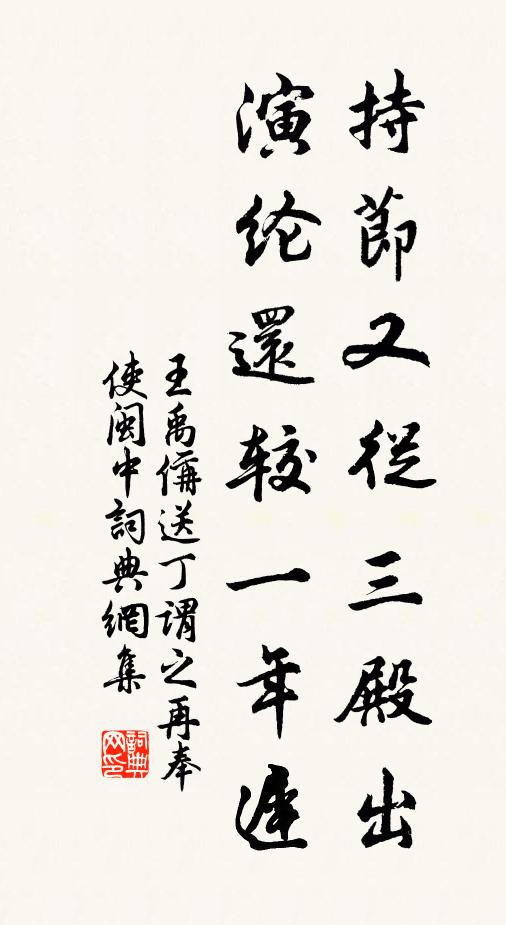 持節又從三殿出
演纶還較一年遲
王禹偁送丁謂之再奉
使閩中詞典網集
詞典
网印